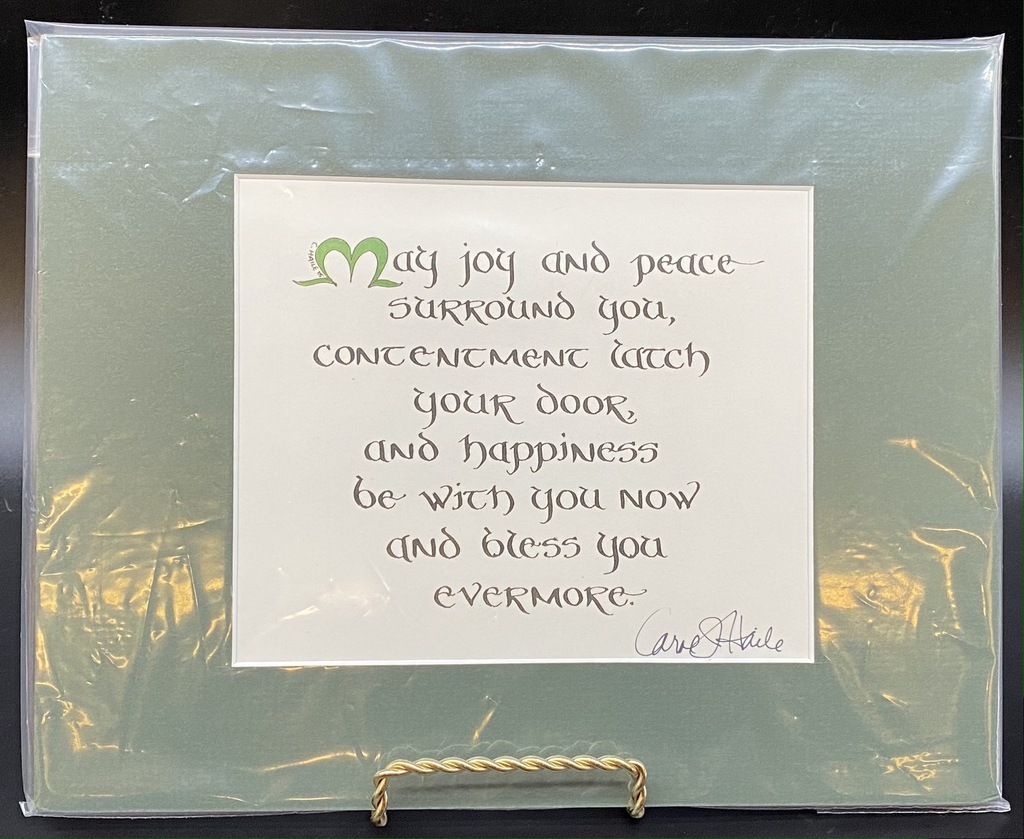 May joy and peace
surround you,
contentment latch
your door,
and happiness
be with you now
and bless you
evermore.
Carol Haile
C HAILE